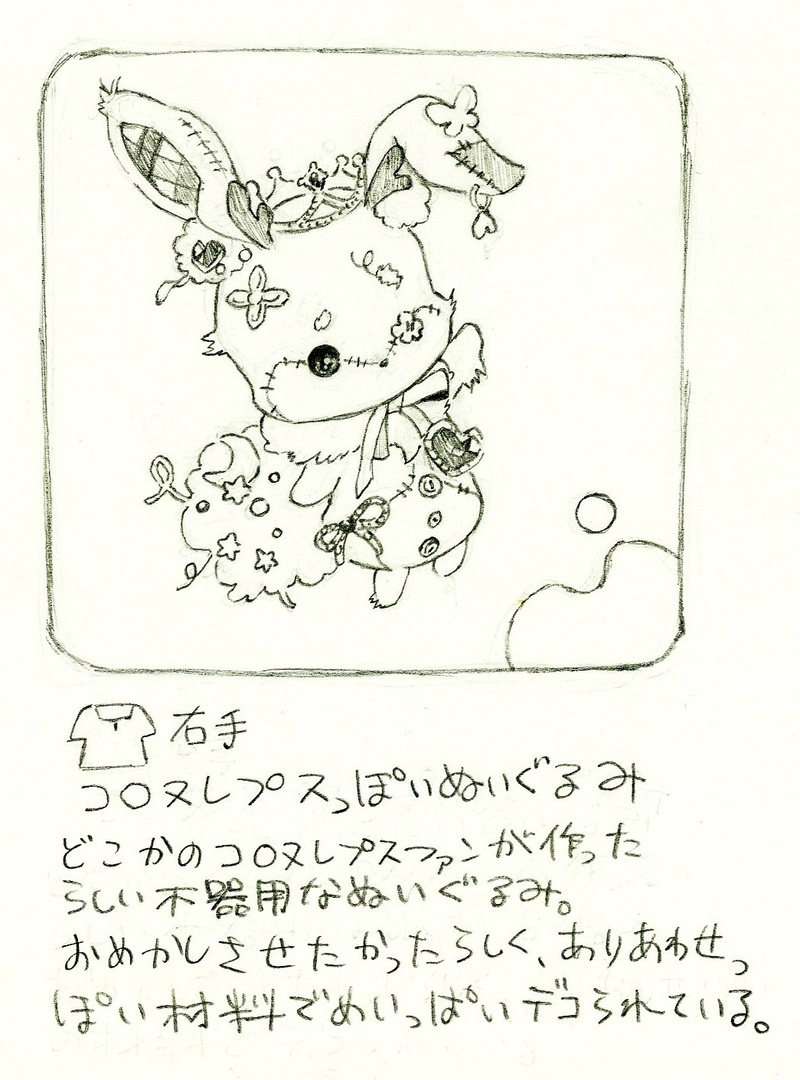 右手
コロヌレプスっぽいぬいぐるみ
どこかのコロヌレプスファンが作った
らしい不器用なぬいぐるみ。
おめかしさせたかったらしく、ありあわせっ
ぽい材料でめいっぱいデコられている。